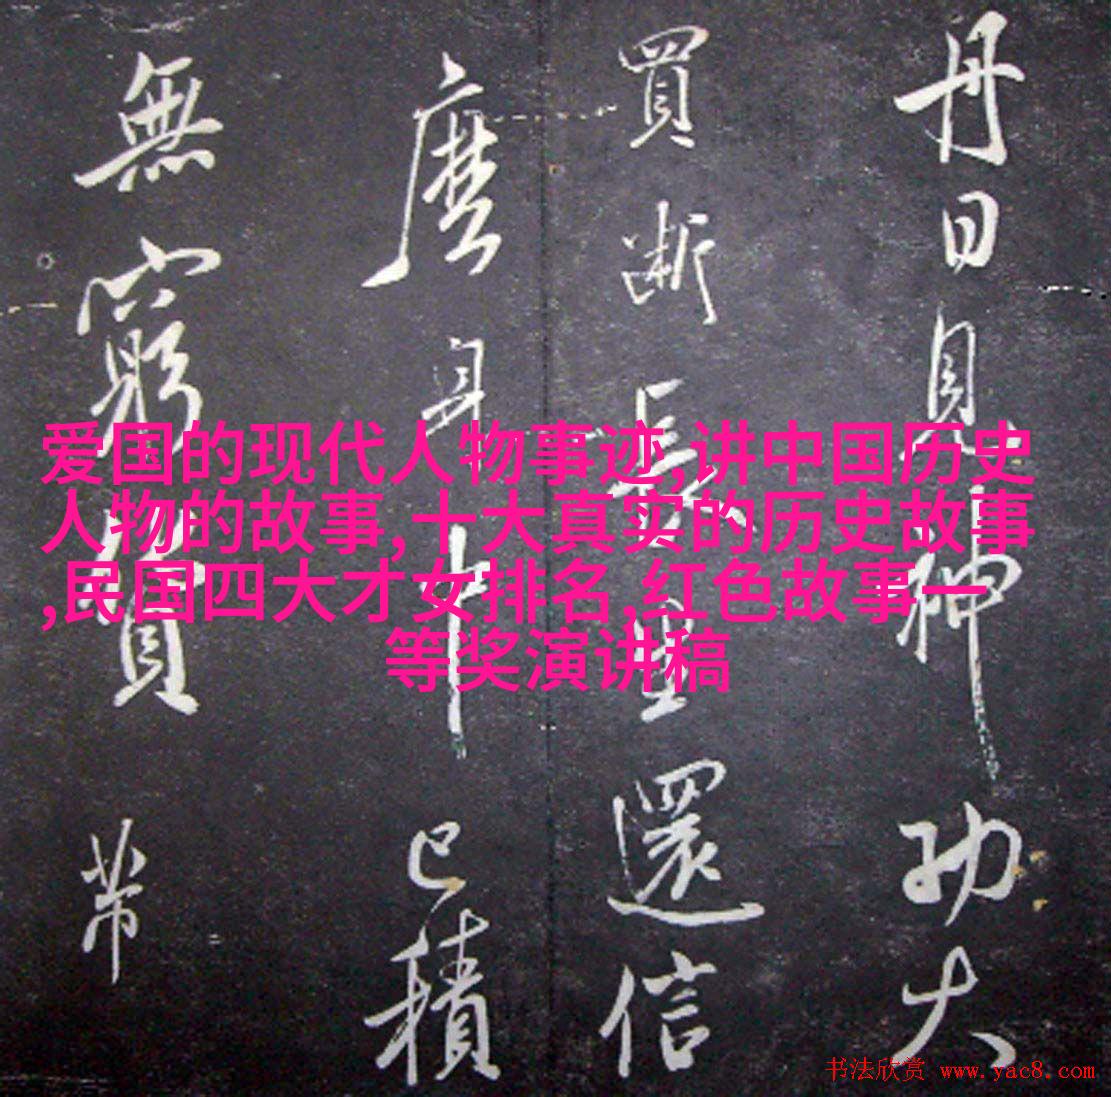 丹日月神功大
買斷長生還信
麼身中已積
無窮貨帶
爱国的现代人物事迹,讲中国历史
人物的故事,十大真实的历史故事
,民国四大才女排名,红色故事一
等奖演讲稿
书法欣赏 www.yac8.com